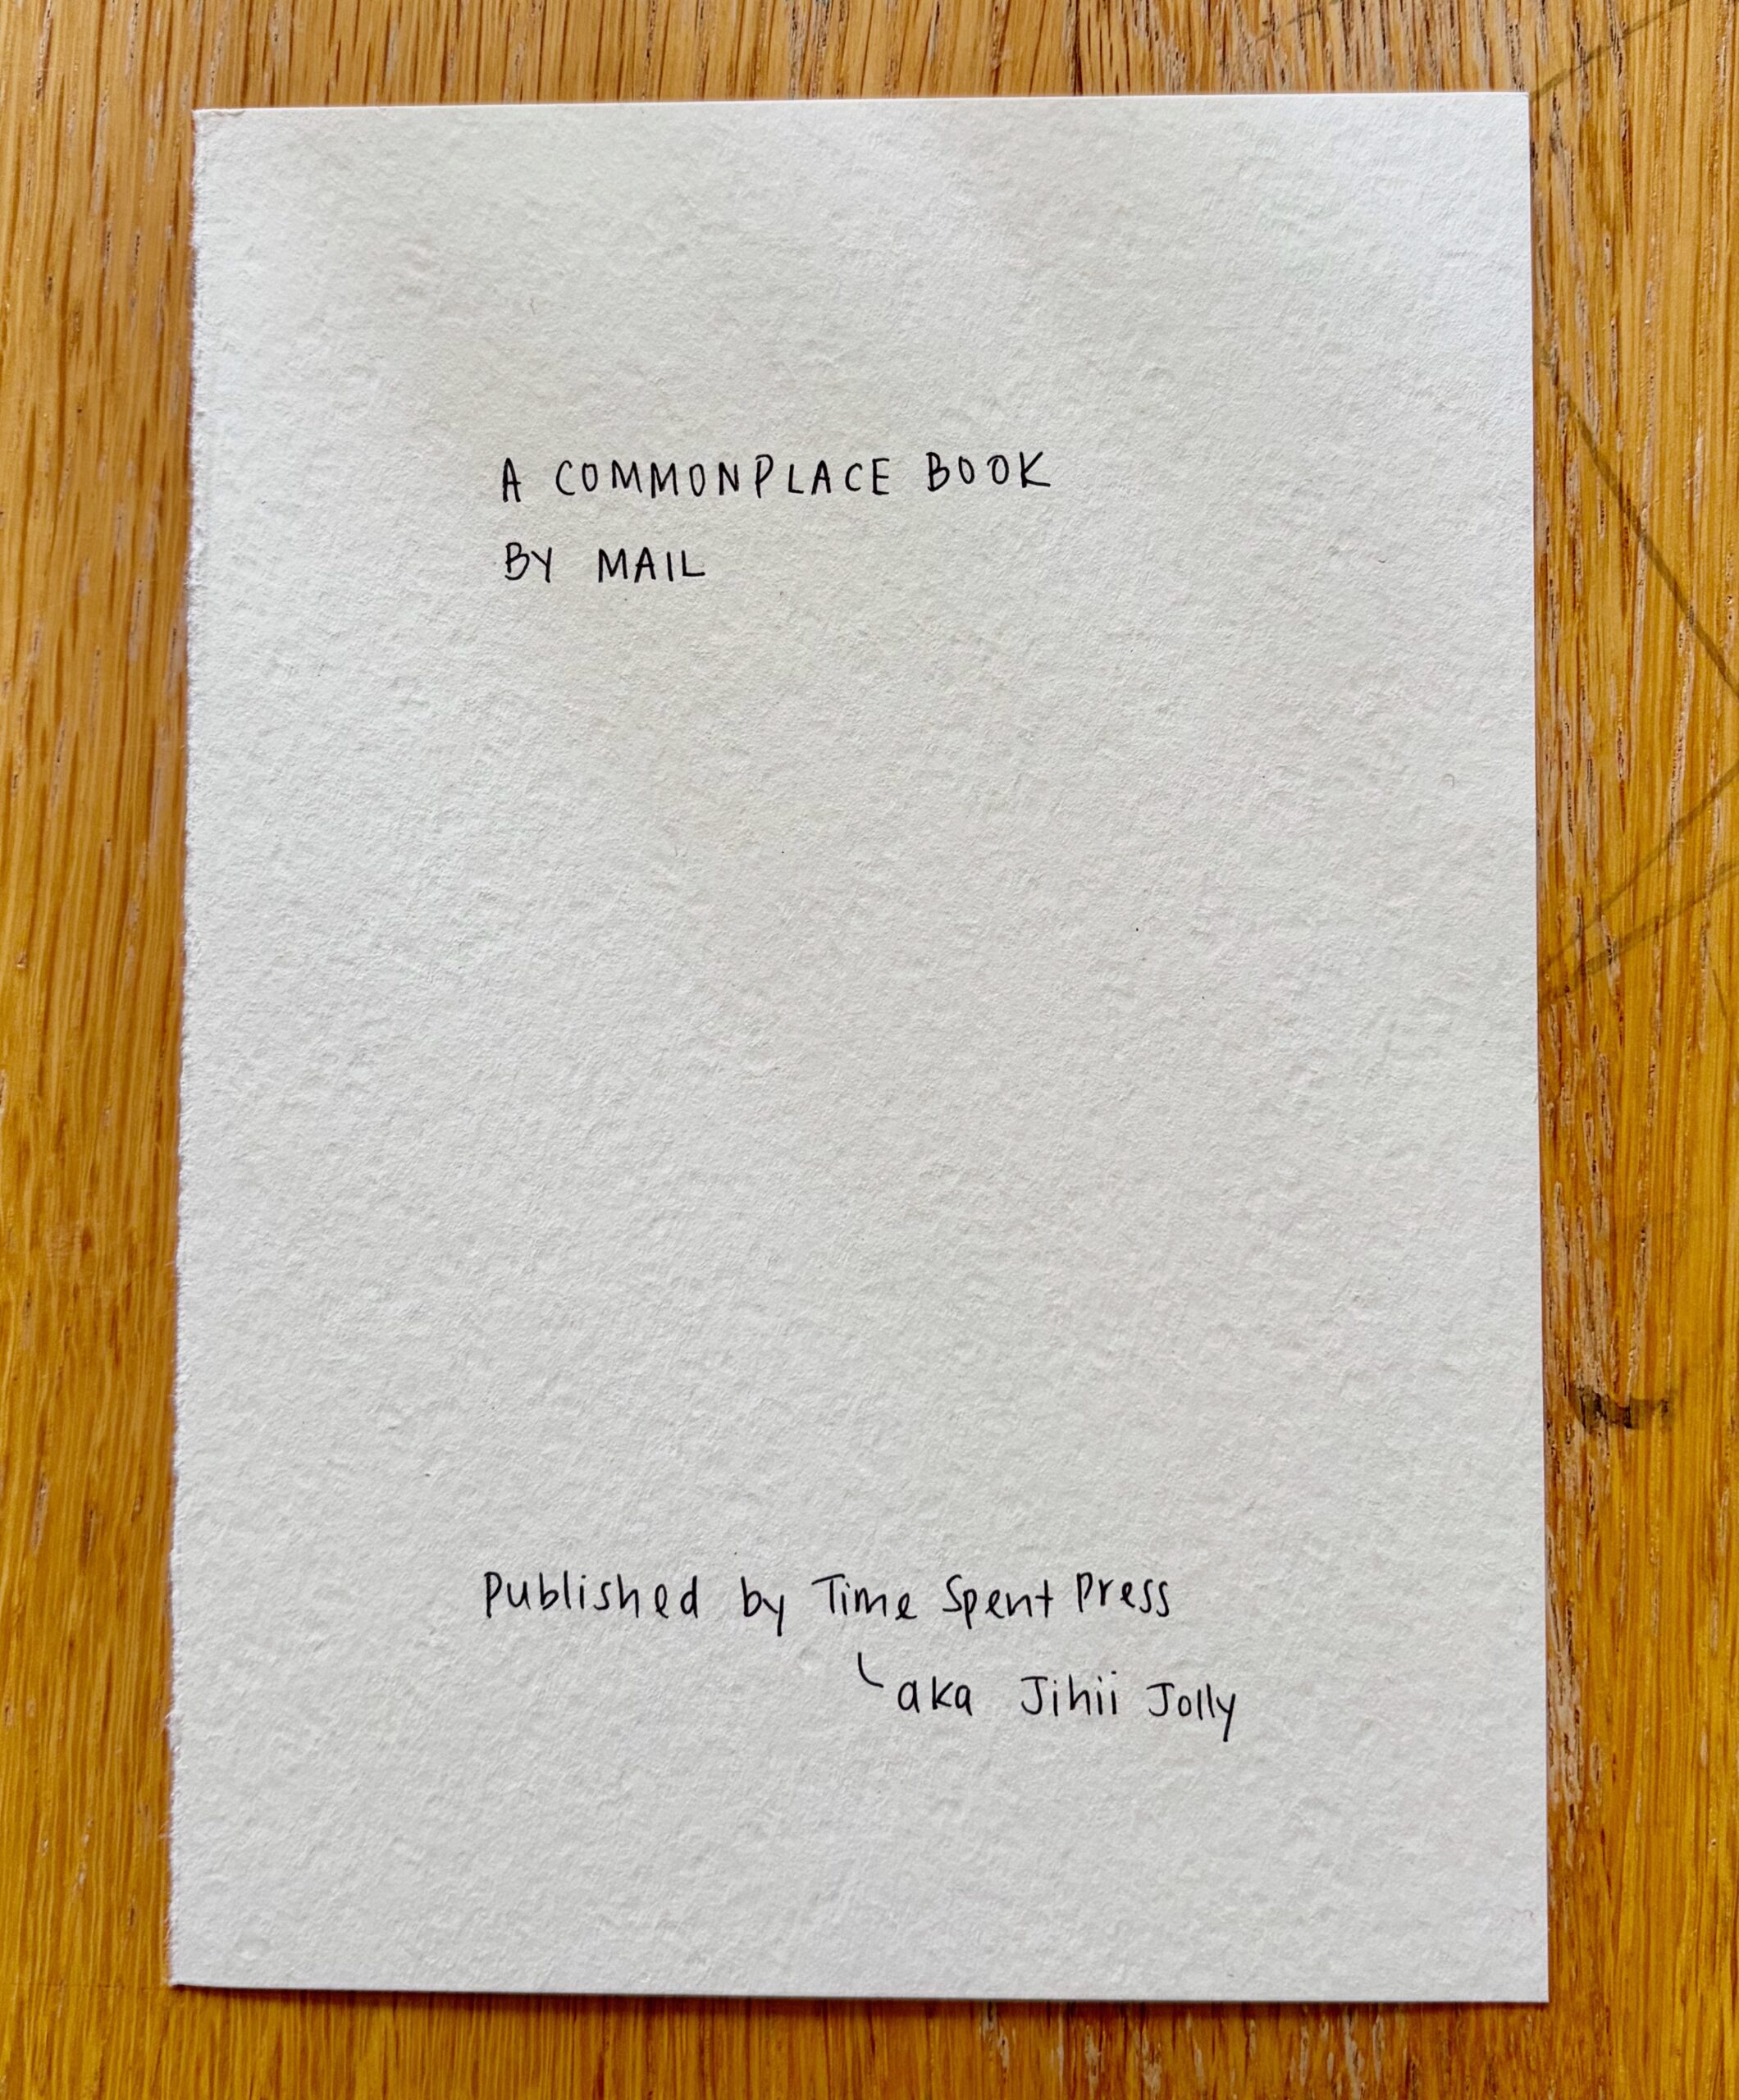 A COMMONPLACE BOOK
BY MAIL
Published by Time Spent Press
aka Jihii Jolly